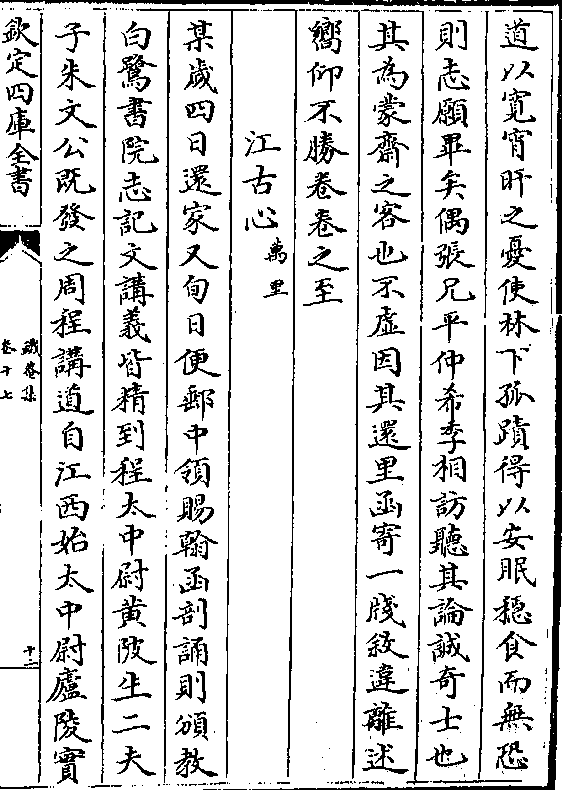 道以寛宵旰之憂使林下孤蹟得以安眠穏食而無恐
則志願畢矣偶張兄平仲希李相訪聽其論誠奇士也
其為蒙齋之客也不虛因其還里函寄一牋敘違離述
嚮仰不勝卷卷之至
江古心萬里
某歲四日還家又旬日便郵中領賜翰函剖誦則頒教
白鷺書院志記文講義皆精到程太中尉黄陂生二夫
子朱文公既發之周程講道自江西始太中尉廬陵實
欽定四庫全書
鐵菴集
卷十七
十二